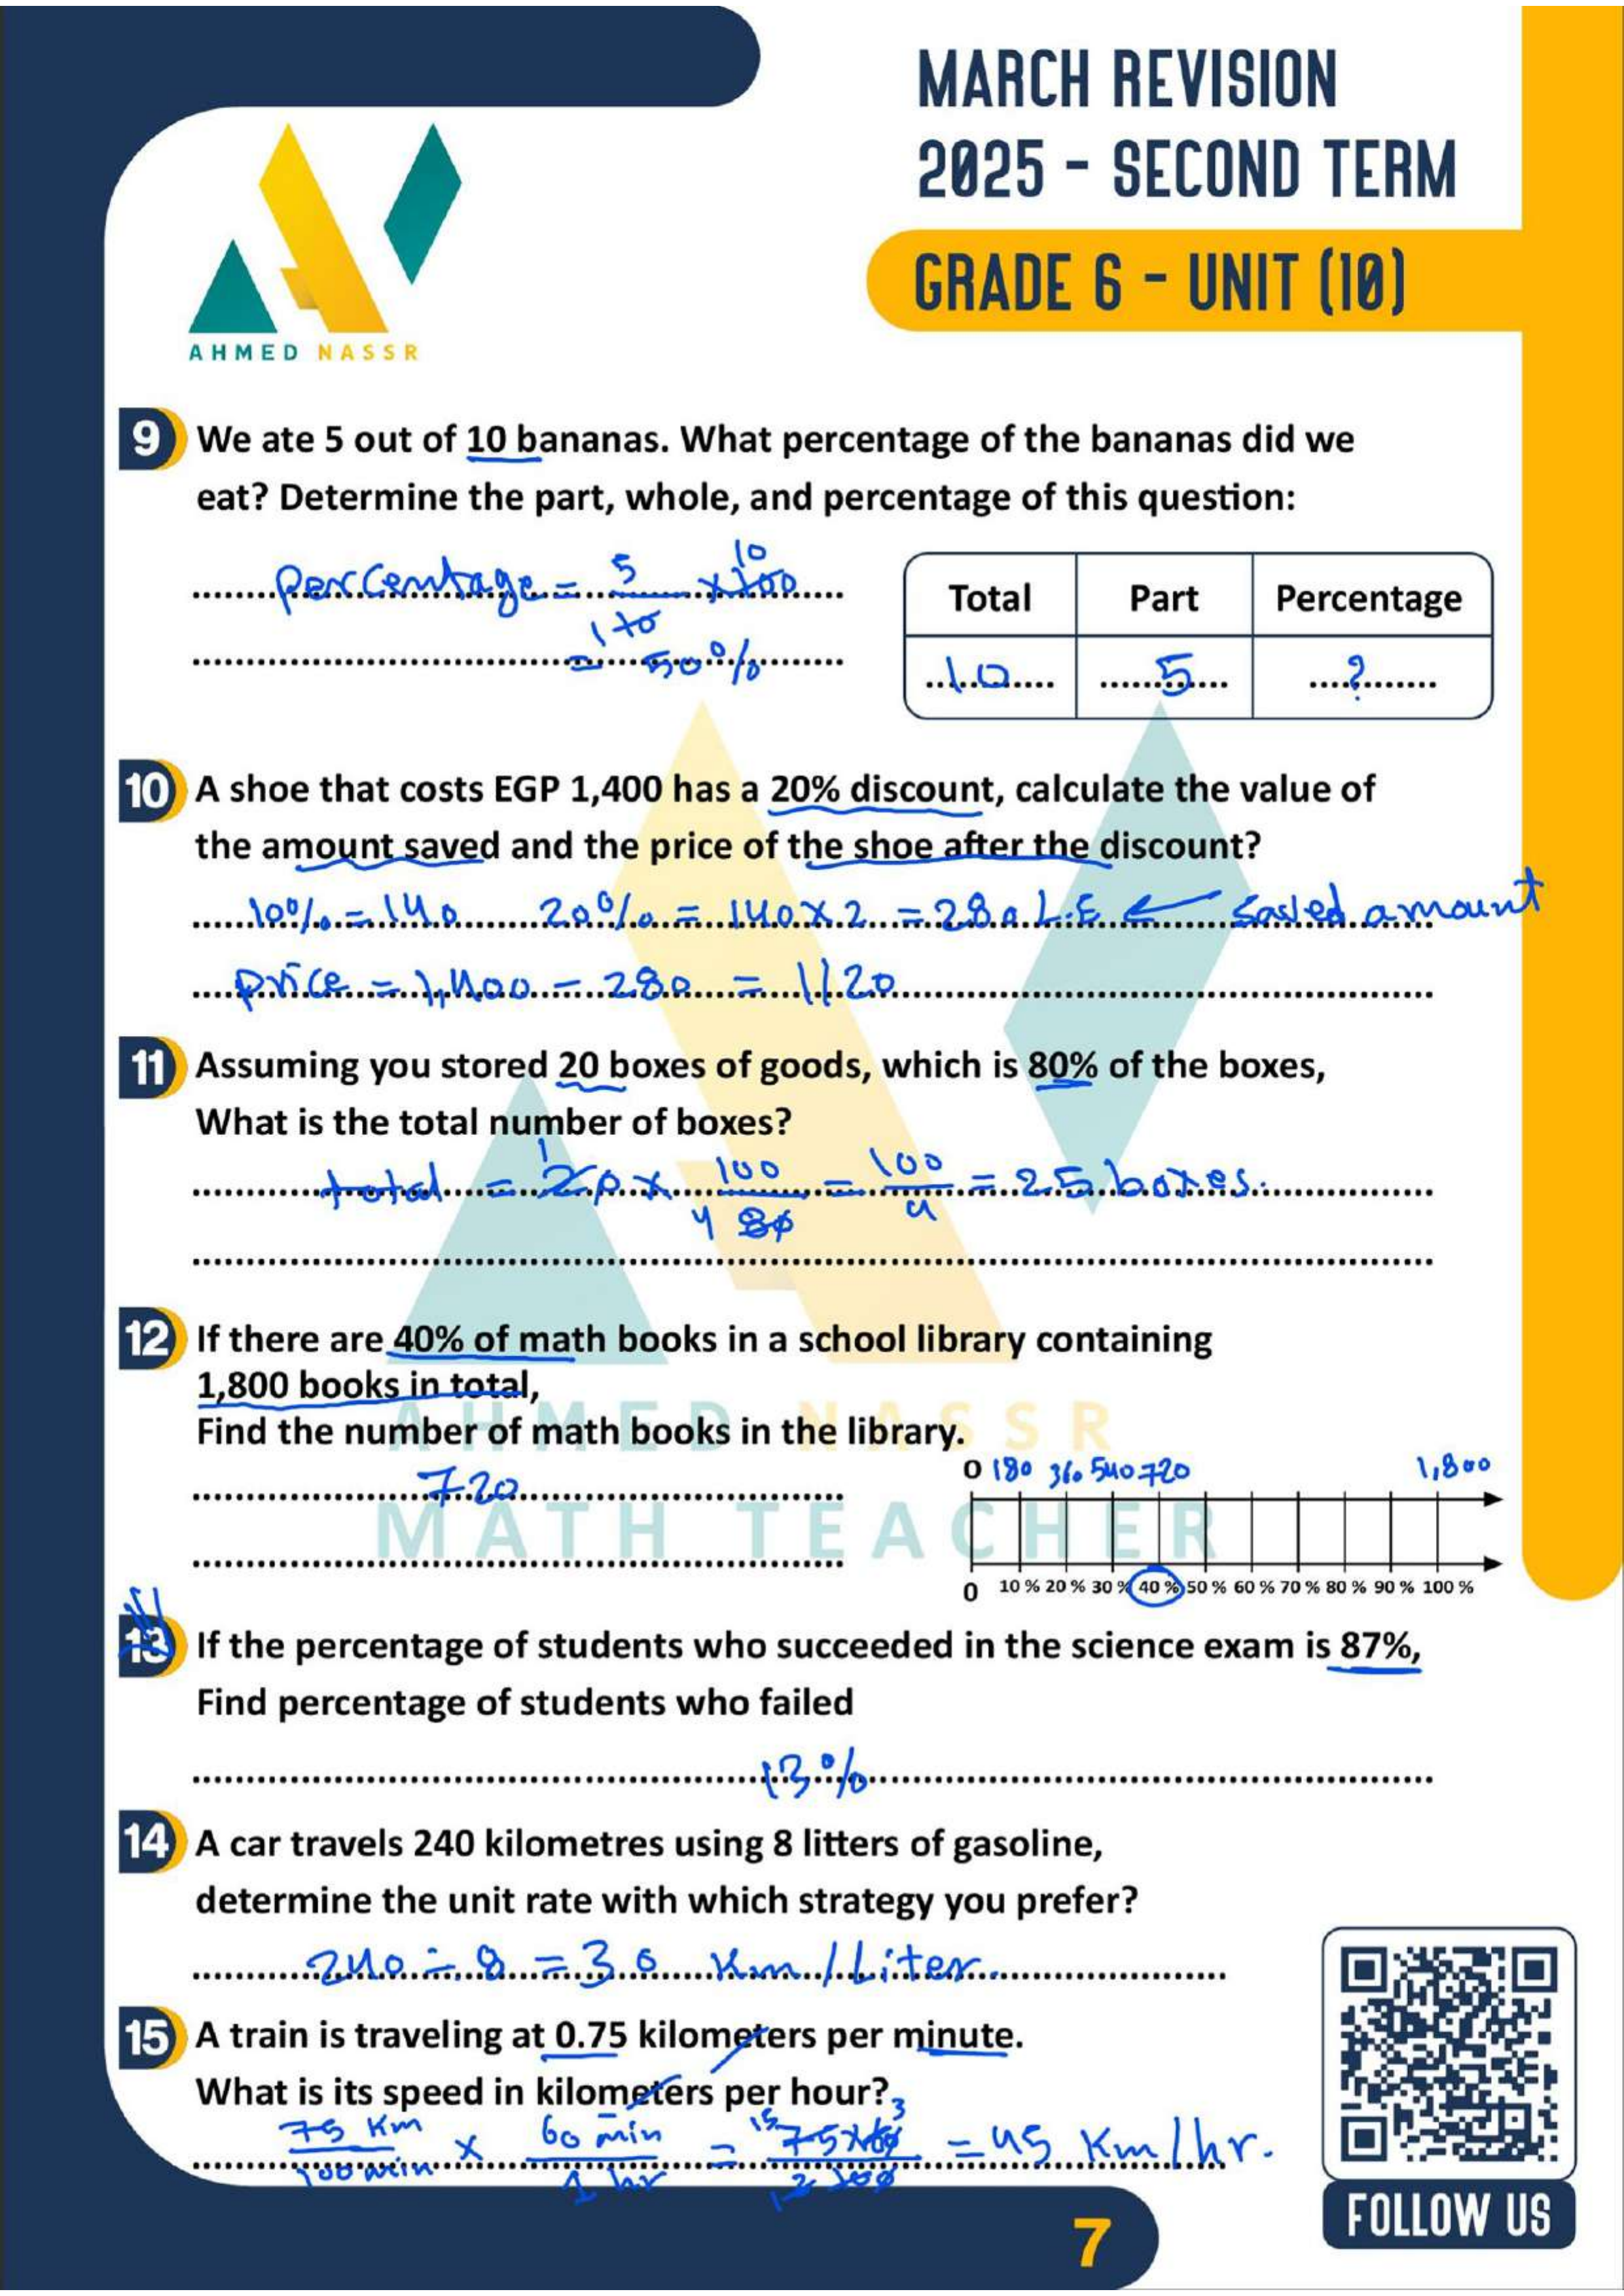 MARCH REVISION
2025 - SECOND TERM
GRADE 6 - UNIT (10)
AHMED NASSR
9 We ate 5 out of 10 bananas. What percentage of the bananas did we
eat? Determine the part, whole, and percentage of this question:
Percentage = 5/10 × 100
1 10
= 50%
Total Part Percentage
10 5 ?
10 A shoe that costs EGP 1,400 has a 20% discount, calculate the value of
the amount saved and the price of the shoe after the discount?
10% = 140 20% = 140 × 2 = 280 L.E ← saved amount
price = 1,400 - 280 = 1120
11 Assuming you stored 20 boxes of goods, which is 80% of the boxes,
What is the total number of boxes?
1
total = 20 × 100/80 = 100/4 = 25 boxes.
4
12 If there are 40% of math books in a school library containing
1,800 books in total,
Find the number of math books in the library.
0 180 360 540 720 1,800
720
0 10 % 20 % 30 % 40 % 50 % 60 % 70 % 80 % 90 % 100 %
AHMED NASSR
MATH TEACHER
13 If the percentage of students who succeeded in the science exam is 87%,
Find percentage of students who failed
13%
14 A car travels 240 kilometres using 8 litters of gasoline,
determine the unit rate with which strategy you prefer?
240 ÷ 8 = 30 Km / Liter.
15 A train is traveling at 0.75 kilometers per minute.
What is its speed in kilometers per hour?
15 3
75 Km/100 min × 60 min/1 hr = 75×60/100 = 45 Km / hr.
1 2
FOLLOW US
7